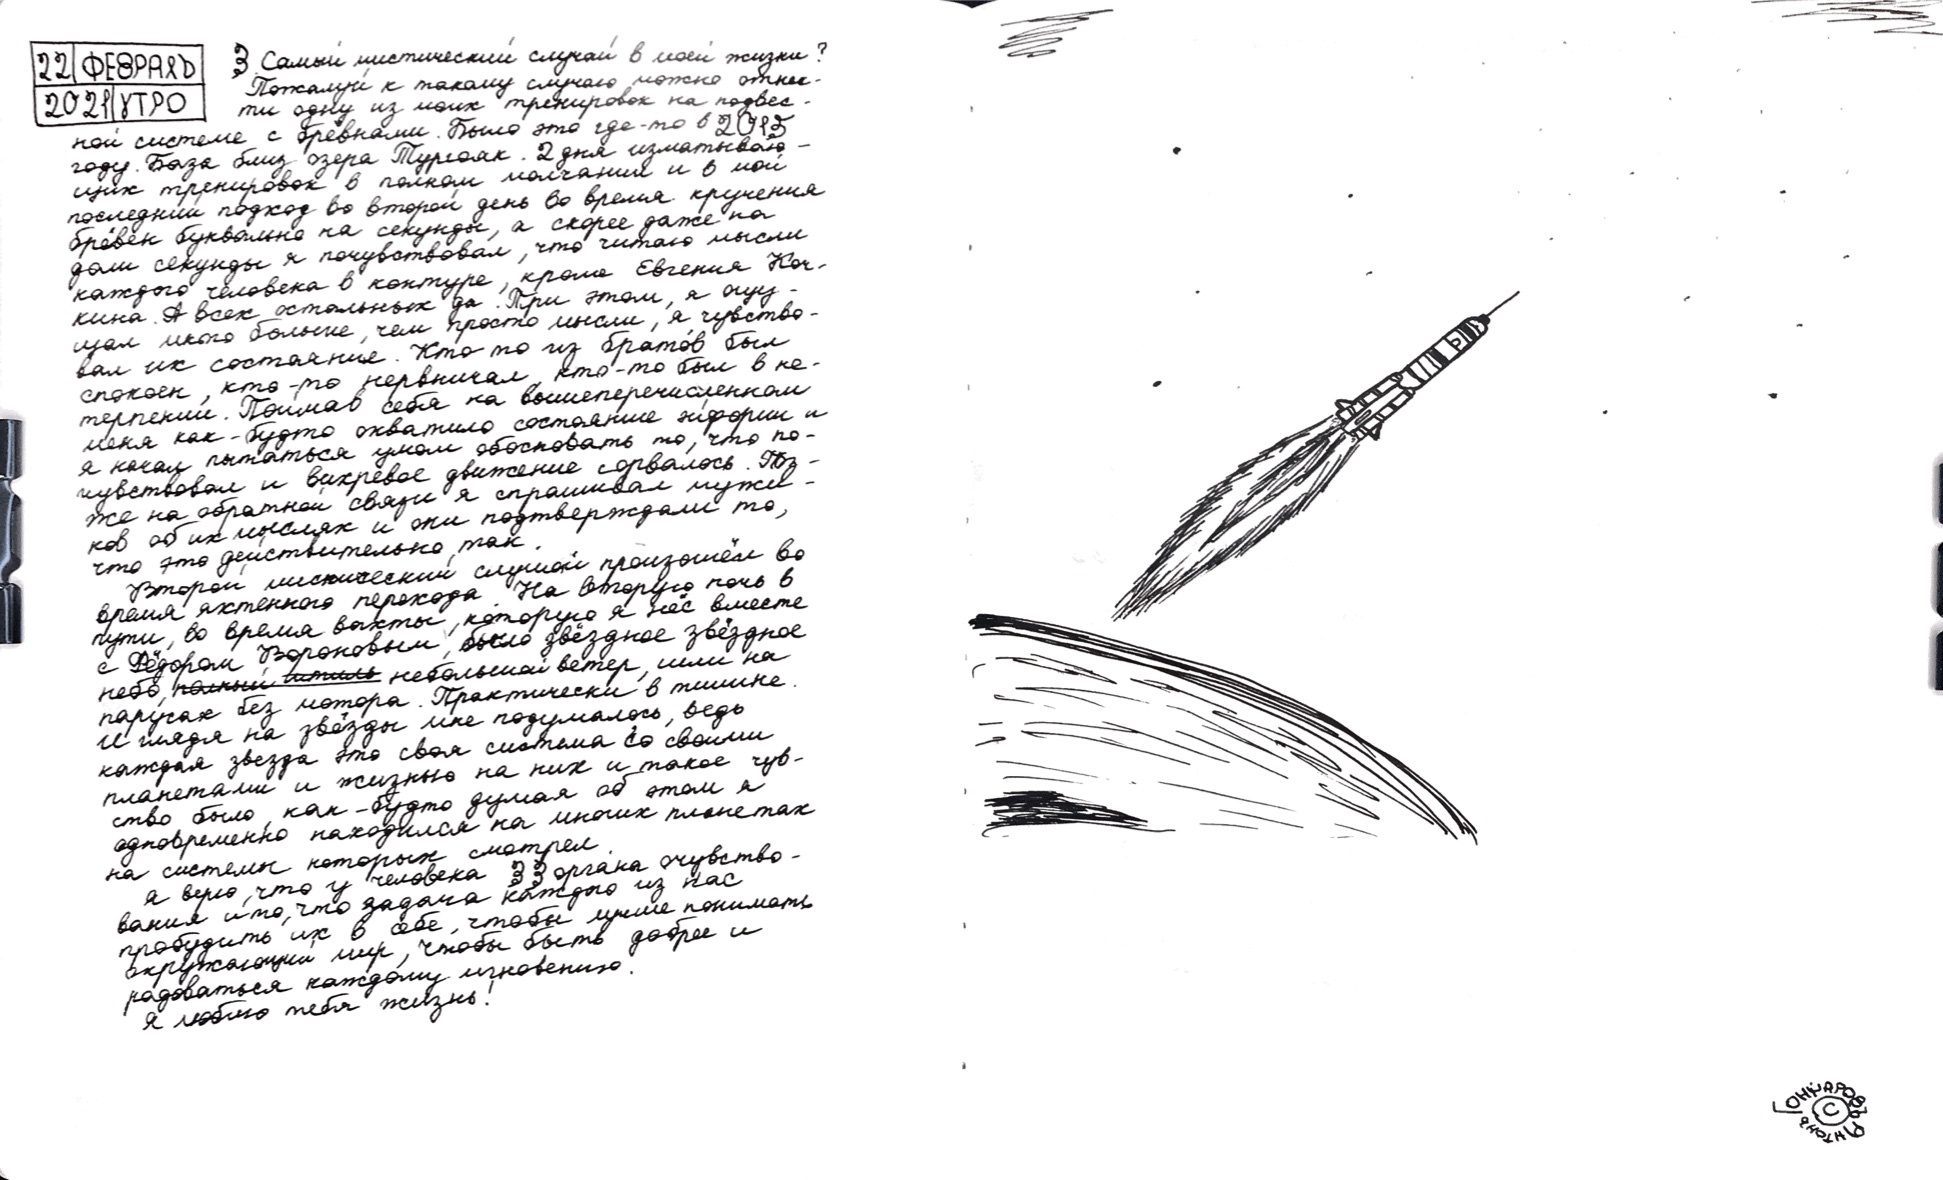 22 ФЕВРАЛЬ
2021 УТРО
3. Самый мистический случай в моей жизни?
Пожалуй к такому случаю можно отнес-
ти одну из моих тренировок на подвес-
ной системе с брёвнами. Было это где-то в 2015
году. База близ озера Тургояк. 2 дня изматываю-
щих тренировок в полном молчании и в мой
последний подход во второй день во время кручения
брёвен буквально на секунды, а скорее даже на
доли секунды я почувствовал, что читаю мысли
каждого человека в контуре, кроме Евгения Коч-
кина. А всех остальных да. При этом, я ощу-
щал много больше, чем просто мысли, я чувство-
вал их состояние. Кто то из братов был
спокоен, кто-то нервничал, кто-то был в не-
терпении. Поймав себя на вышеперечисленном
меня как-будто охватило состояние эйфории и
я начал пытаться умом обосновать то, что по-
чувствовал и вихревое движение сорвалось. Поз-
же на обратной связи я спрашивал мужи-
ков об их мыслях и они подтверждали то,
что это действительно так.
Второй мистический случай произошёл во
время яхтенного перехода. На вторую ночь в
пути, во время вахты, которую я нёс вместе
с Фёдором Вороновым, было звёздное звёздное
небо, полный штиль небольшой ветер, шли на
парусах без мотора. Практически в тишине.
И глядя на звёзды мне подумалось, ведь
каждая звезда это своя система со своими
планетами и жизнью на них и такое чув-
ство было, как-будто думая об этом я
одновременно находился на многих планетах
на системы которых смотрел.
Я верю, что у человека 33 органа очувство-
вания и то, что задача каждого из нас
пробудить их в себе, чтобы лучше понимать
окружающий мир, чтобы быть добрее и
радоваться каждому мгновению.
Я люблю тебя жизнь!
Р
Гончаровъ Антонъ
©